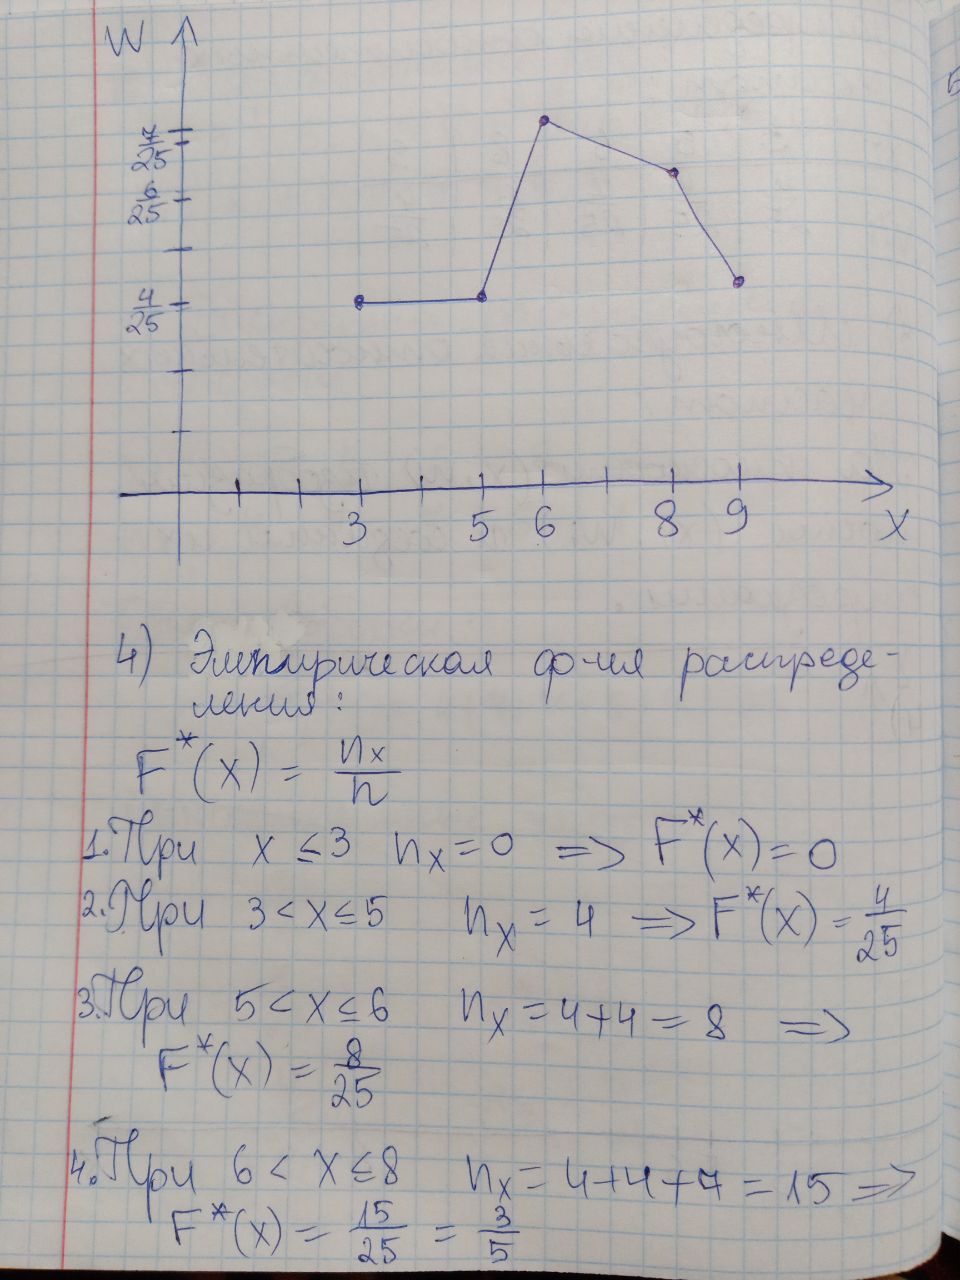 W
7/25
6/25
4/25
3 5 6 8 9 X
4) Эмпирическая ф-ия распреде-
ления:
F*(x) = nx/n
1. При x ≤ 3 nx = 0 => F*(x) = 0
2. При 3 < x ≤ 5 nx = 4 => F*(x) = 4/25
3. При 5 < x ≤ 6 nx = 4+4 = 8 =>
F*(x) = 8/25
4. При 6 < x ≤ 8 nx = 4+4+7 = 15 =>
F*(x) = 15/25 = 3/5